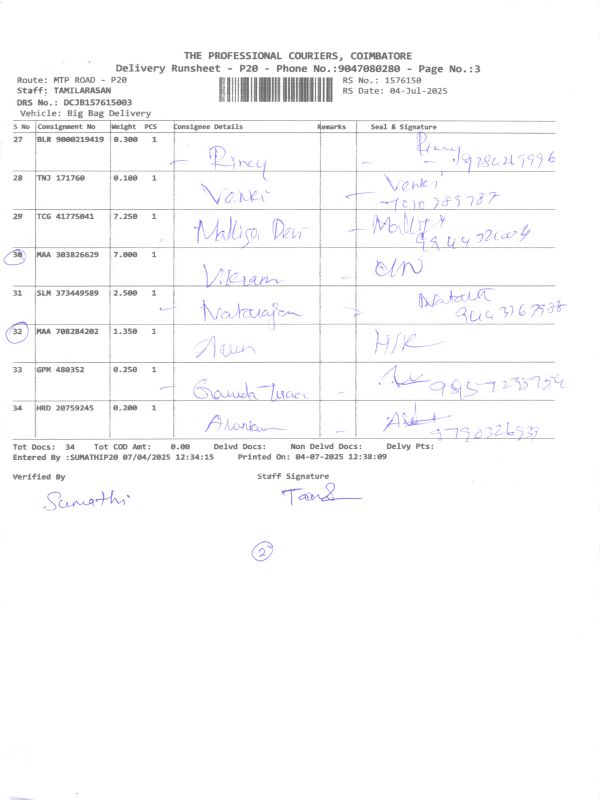 THE PROFESSIONAL COURIERS, COIMBATORE
Delivery Runsheet - P20 - Phone No.:9047080280 - Page No.:3
Route: MTP ROAD - P20 RS No.: 1576150
Staff: TAMILARASAN RS Date: 04-Jul-2025
DRS No.: DCJB157615003
Vehicle: Big Bag Delivery
S No Consignment No Weight PCS Consignee Details Remarks Seal & Signature
27 BLR 9000219419 0.300 1 Rincy Rincy
28 TNJ 171760 0.100 1 Venki Venki
7010389787
29 TCG 41775041 7.250 1 Malliga Devi Malliga
30 MAA 303826629 7.000 1 Vikram
31 SLM 373449589 2.500 1 Natarajan
9443763988
32 MAA 708284202 1.350 1 Arun H/R
33 GPM 480352 0.250 1
34 HRD 20759245 0.200 1
Tot Docs: 34 Tot COD Amt: 0.00 Delvd Docs: Non Delvd Docs: Delvy Pts:
Entered By :SUMATHIP20 07/04/2025 12:34:15 Printed On: 04-07-2025 12:38:09
Verified By Staff Signature
Sumathi
2